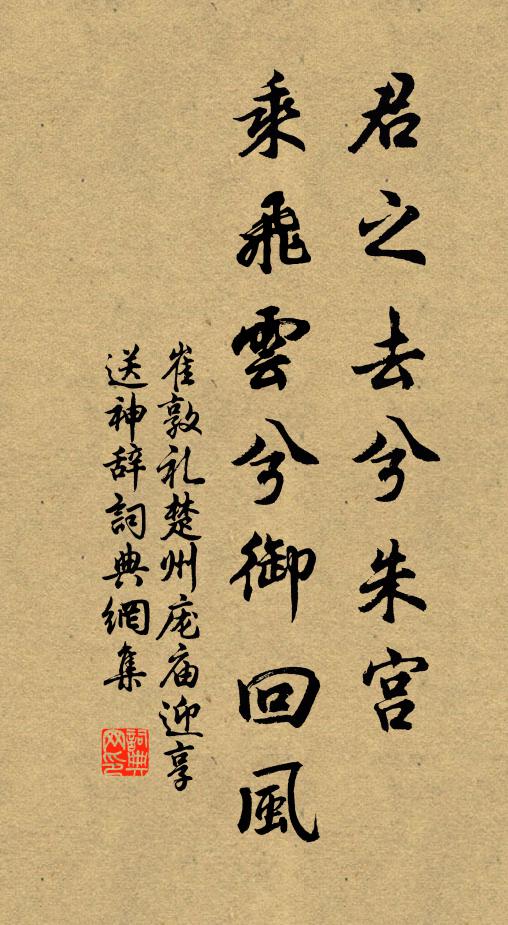 君之去兮朱宫
乘飛雲兮御回風
崔敦礼楚州庞庙迎享
送神辞詞典網集
詞典
网